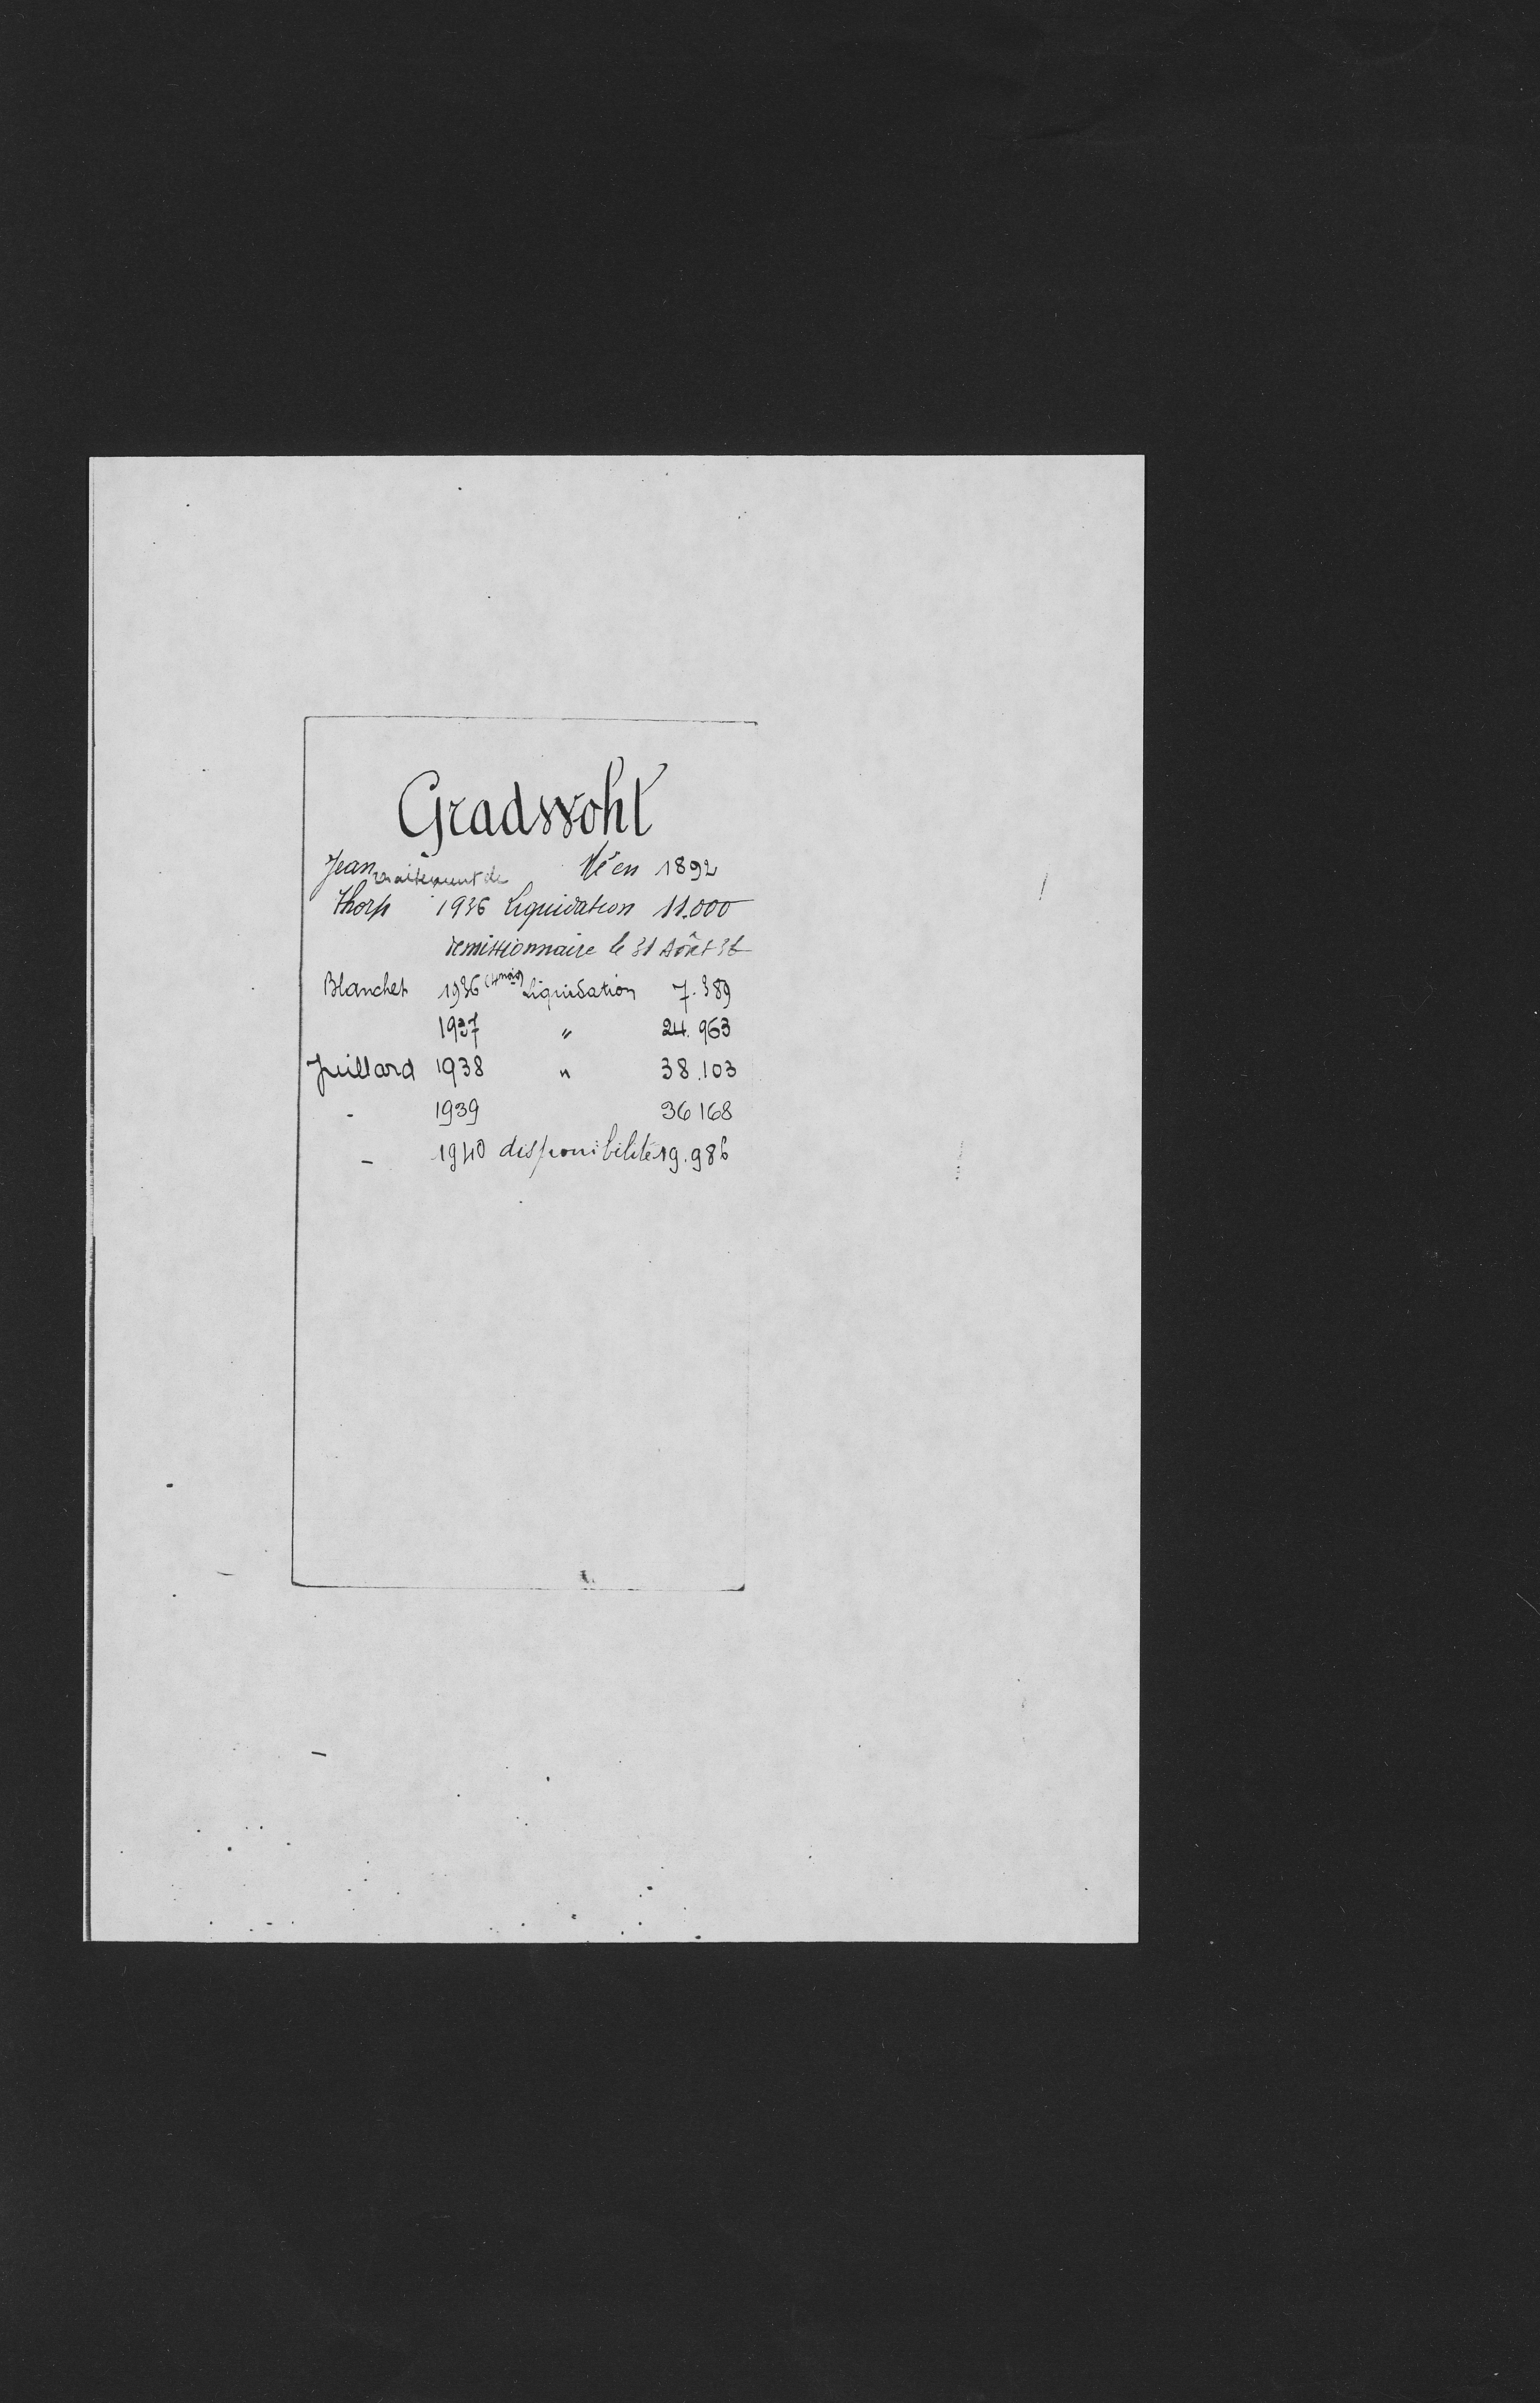 Gradwohl
Jean Né en 1892
traitement de
Thorp 1936 Liquidation 11.000
demissionnaire le 31 Août 36
Blanchet 1936 (4 mois) Liquidation 7.389
1937 " 24.963
Juillard 1938 " 38.103
- 1939 36168
- 1940 disponibilité 19.986